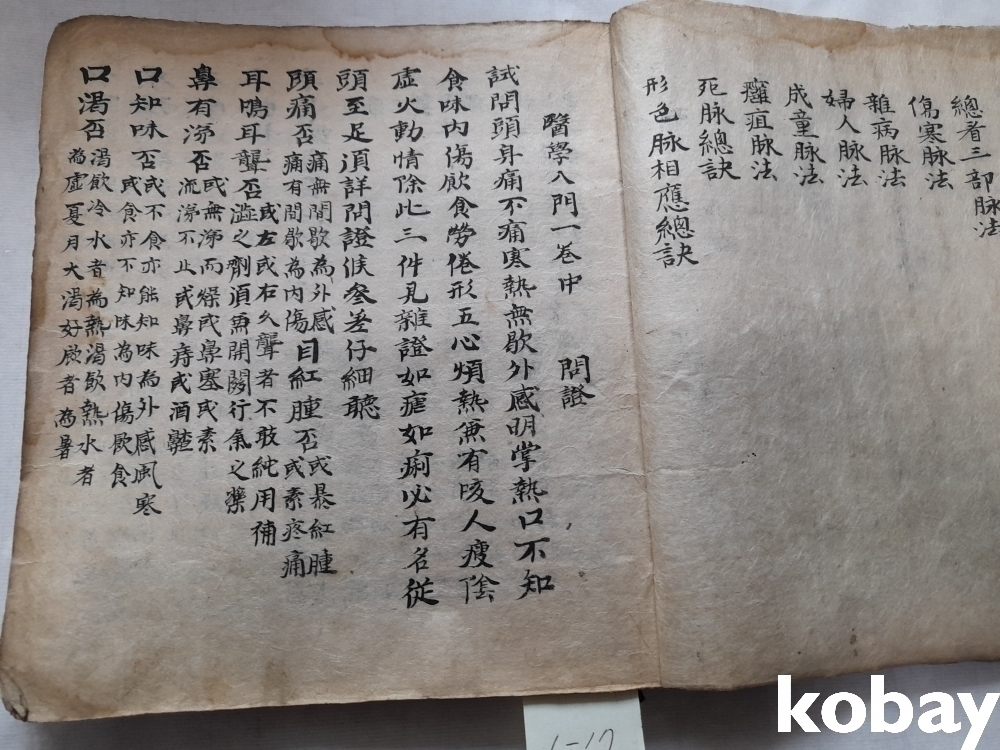 總看三部脉法
傷寒脉法
雜病脉法
婦人脉法
成童脉法
癰疽脉法
死脉總訣
形色脉相應總訣
醫學入門一卷中 問證
試問頭身痛不痛寒熱無歇外感明掌熱口不知
食味內傷飮食勞倦形五心煩熱兼有咳人瘦陰
虛火動情除此三件見雜證如瘧如痢必有名從
頭至足須詳問證候叅差仔細聽
頭痛否 痛無間歇為外感 痛有間歇為內傷 目紅腫否 或暴紅腫 或素疼痛
耳鳴耳聾否 或左或右久聾者不敢純用補 澁之劑須兼開關行氣之藥
鼻有涕否 或無涕而燥或鼻塞或素 流涕不止或鼻痔或酒齄
口知味否 或不食亦能知味為外感風寒 或食亦不知味為內傷飮食
口渴否 渴飮冷水者為熱渴飮熱水者 為虛夏月大渴好飮者為暑
1-17
kobay